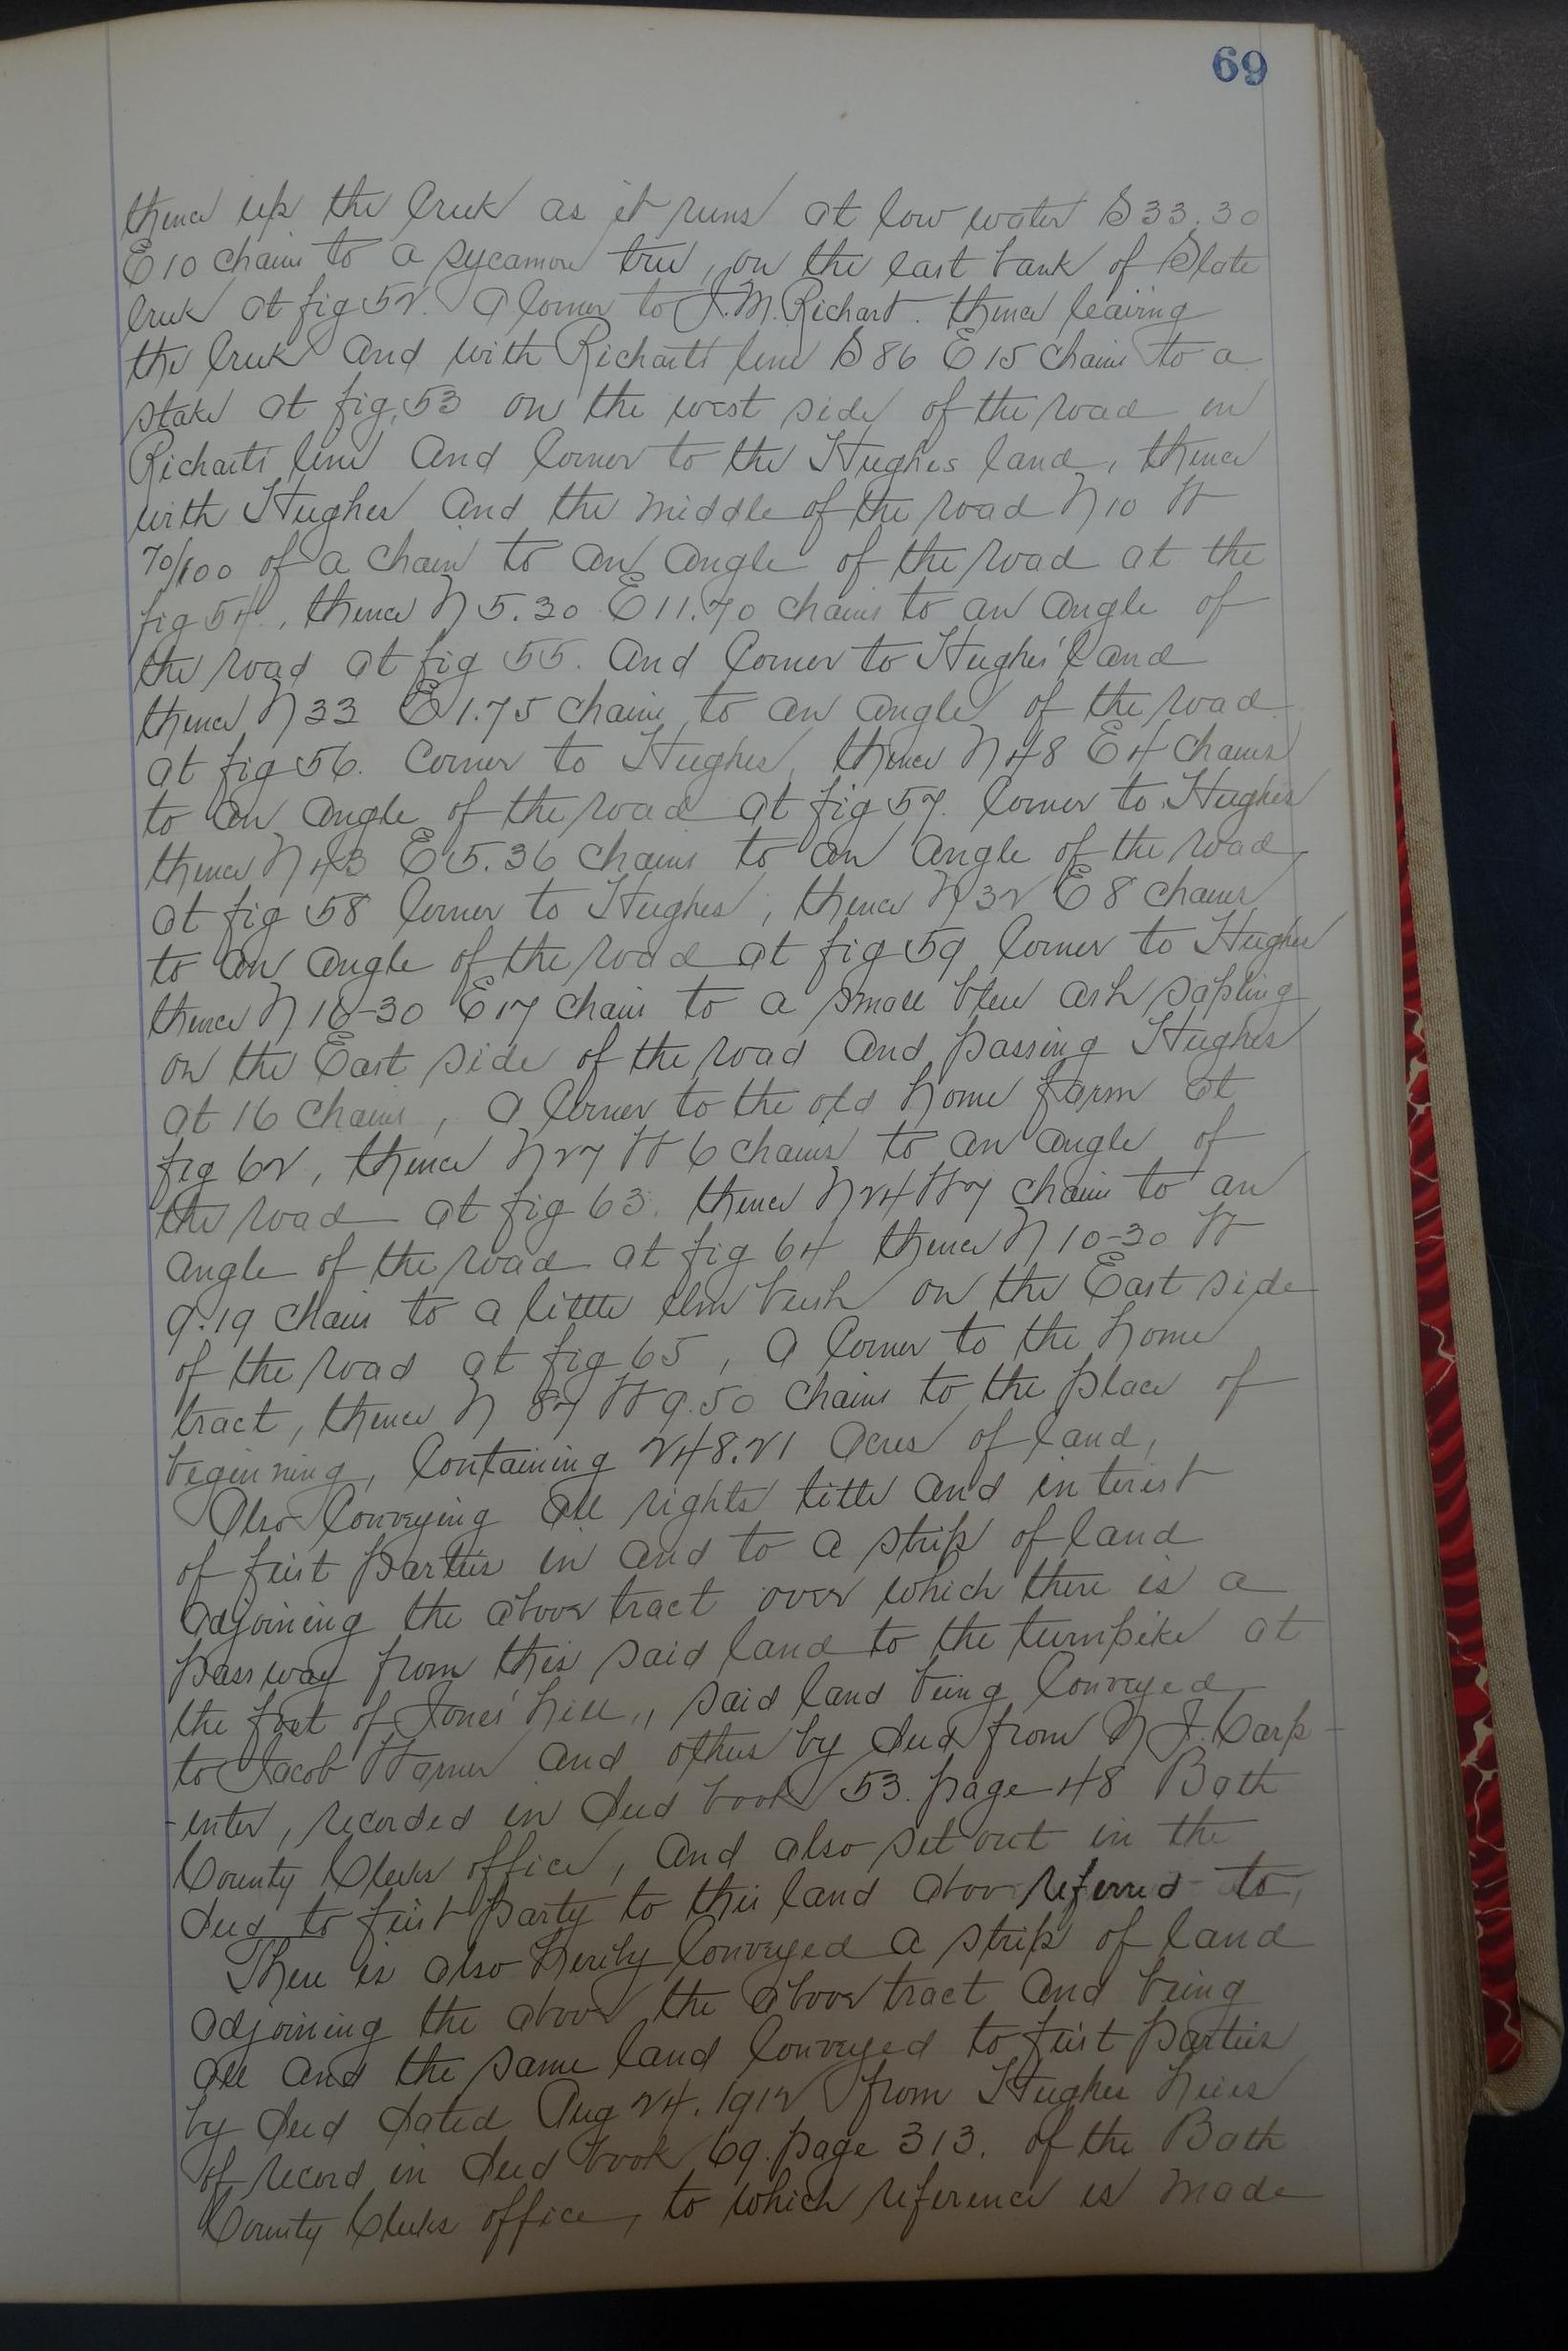 69
thence up the Creek as it runs at low water S 33.30
E 10 chains to a sycamore tree, on the east bank of Slate
Creek at fig 52. A Corner to J. M. Richart. thence leaving
the Creek and with Richarts line S 86 E 15 chains to a
stake at fig. 53 on the west side of the road in
Richarts line and Corner to the Hughes land, thence
with Hughes and the middle of the road N 10 W
70/100 of a chain to an angle of the road at the
fig 54., thence N 5.30 E 11.70 chains to an angle of
the road at fig 55. and Corner to Hughes' land
thence N 33 E 1.75 chains to an angle of the road
at fig 56. Corner to Hughes, thence N 48 E 4 chains
to an angle of the road at fig 57. Corner to Hughes
thence N 43 E 5.36 chains to an angle of the road,
at fig 58 Corner to Hughes, thence N 32 E 8 chains
to an angle of the road at fig 59 Corner to Hughes
thence N 16-30 E 17 chains to a small blue ash sapling
on the East side of the road and passing Hughes
at 16 chains, a Corner to the old home farm at
fig 62, thence N 27 W 6 chains to an angle of
the road at fig 63. thence N 24 W 7 chains to an
angle of the road at fig 64 thence N 10-30 W
9.19 chains to a little elm bush on the East side
of the road at fig 65, a Corner to the home
tract, thence N 87 W 9.50 chains to the place of
beginning, Containing 248.21 Acres of land,
Also Conveying all rights title and interest
of first parties in and to a strip of land
adjoining the above tract over which there is a
passway from this said land to the turnpike at
the foot of Jones' hill,, said land being Conveyed
to Jacob Warner and others by deed from N. J. Carp-
-enter, recorded in deed book 53. page 48 Bath
County Clerks office, and also set out in the
deed to first party to this land above referred to,
There is also hereby Conveyed a strip of land
adjoining the above the above tract and being
all and the same land Conveyed to first parties
by deed dated Aug 24. 1912 from Hughes heirs
of record in deed book 69. page 313. of the Bath
County Clerks office, to which reference is made